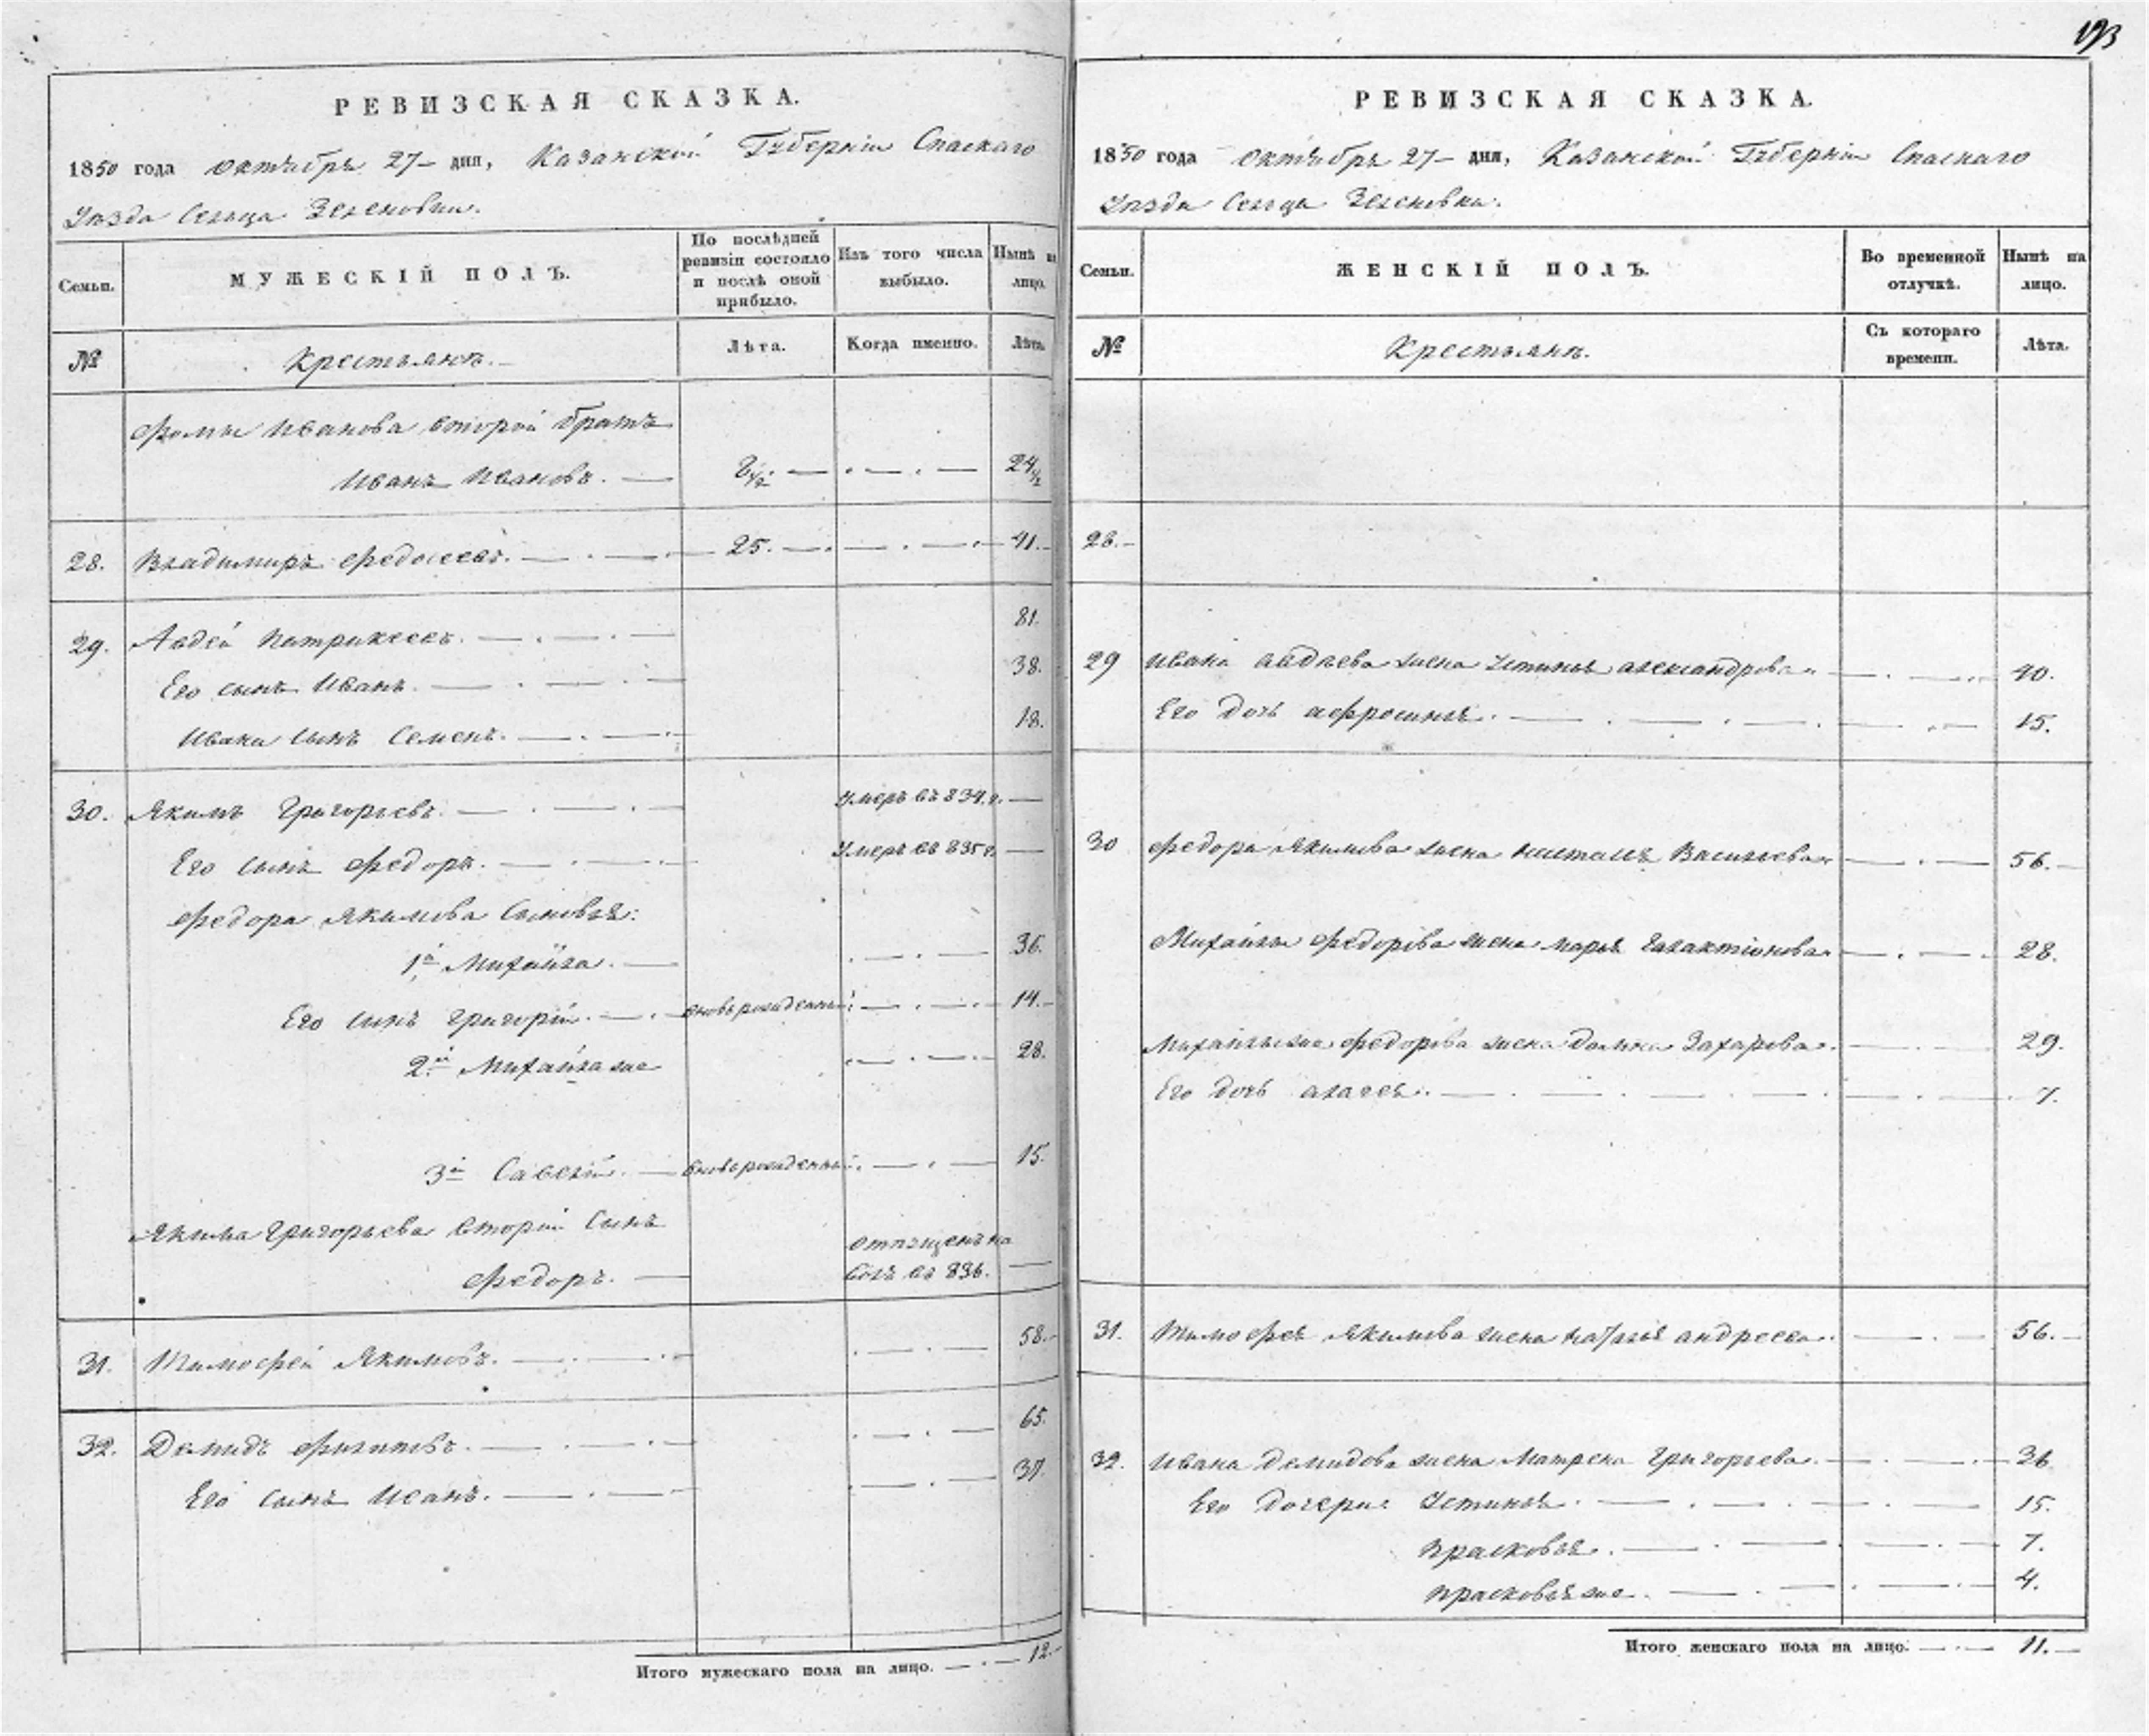 193
РЕВИЗСКАЯ СКАЗКА.
1850 года октября 27 дня, Казанской Губерніи Спаскаго
Уѣзда Сельца Зеленовки.
Семьи.
МУЖЕСКІЙ ПОЛЪ.
По послѣдней ревизіи состояло и послѣ оной прибыло.
Изъ того числа выбыло.
Нынѣ на лицо.
№
Крестьянъ.
Лѣта.
Когда именно.
Лѣта.
Фомы Иванова второй братъ
Иванъ Ивановъ. 8 1/2 24 1/2
28. Владимиръ Федосеевъ. 25. 41.
29. Авдей Патрикеевъ. 81.
Его сынъ Иванъ. 38.
Ивана сынъ Семенъ. 18.
30. Якимъ Григорьевъ. умеръ въ 834 г.
Его сынъ Федоръ. умеръ въ 835 г.
Федора Якимова сыновья:
1й Михайла. 36.
Его сынъ Григорій. вновьрожденный 14.
2й Михайла же 28.
3й Савелій. вновьрожденный 15.
Якима Григорьева второй сынъ
Федоръ. отпущенъ на волю въ 836.
31. Тимофей Якимовъ. 58.
32. Демидъ Филиповъ. 65.
Его сынъ Иванъ. 37.
Итого мужескаго пола на лицо. 12.
РЕВИЗСКАЯ СКАЗКА.
1850 года октября 27 дня, Казанской Губерніи Спаскаго
Уѣзда Сельца Зеленовки.
Семьи.
ЖЕНСКІЙ ПОЛЪ.
Во временной отлучкѣ.
Нынѣ на лицо.
№
Крестьянъ.
Съ котораго времени.
Лѣта.
28.
29 Ивана Авдѣева жена Устинья Александрова 40.
Его дочь Афросинья. 15.
30 Федора Якимова жена Васильева 56.
Михайлы Федорова жена Марья Галактіонова 28.
Михайлы же Федорова жена Домна Захарова. 29.
Его дочь 7.
31. Тимофея Якимова жена Наталья Андреева. 56.
32. Ивана Демидова жена Матрена Григорьева. 36
Его дочери: Устинья. 15.
Прасковья. 7.
Прасковья же. 4.
Итого женскаго пола на лицо. 11.